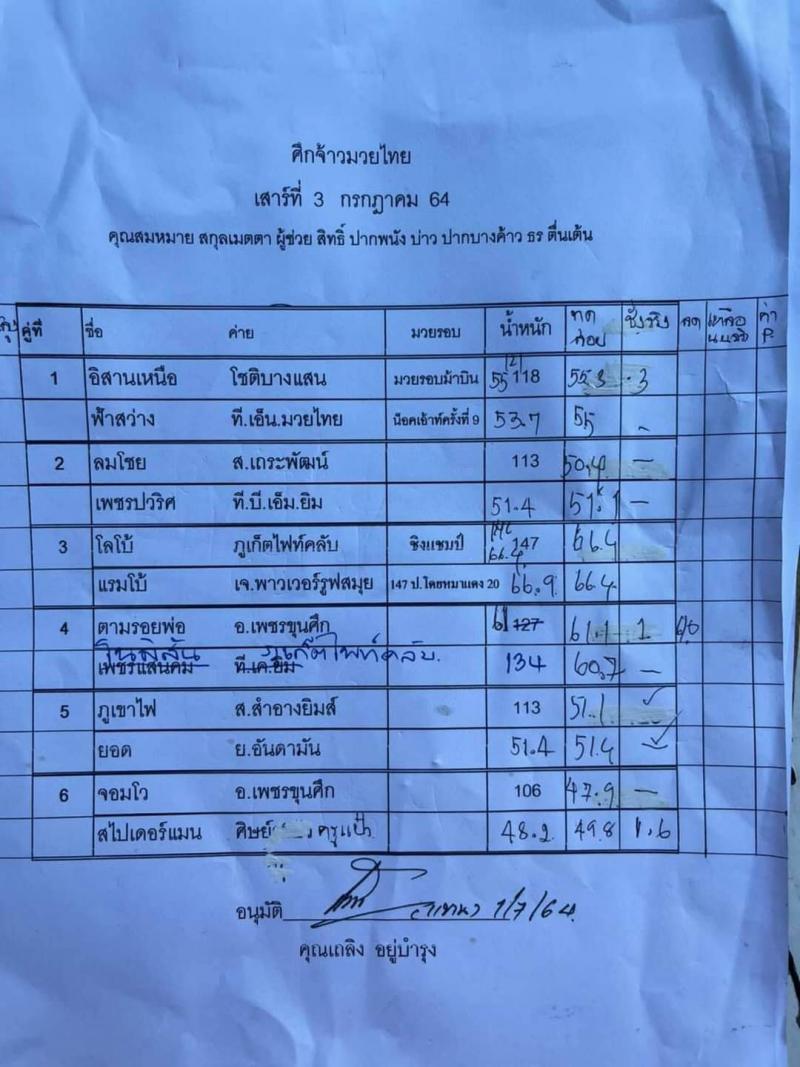 ศึกจ้าวมวยไทย
เสาร์ที่ 3 กรกฎาคม 64
คุณสมหมาย สกุลเมตตา ผู้ช่วย สิทธิ์ ปากพนัง บ่าว ปากบางค้าว ธร ตื่นเต้น
คู่ที่ ชื่อ ค่าย มวยรอบ น้ำหนัก ทด ก่อน ชั่งจริง ลด เหลือ ค่า P.
1 อิสานเหนือ โชติบางแสน มวยรอบม้าบิน 55 121 118 55.3 .3
ฟ้าสว่าง ที.เอ็น.มวยไทย น็อคเอ้าท์ครั้งที่ 9 53.7 55 -
2 ลมโชย ส.เถระพัฒน์ 113 50.4 -
เพชรปวริศ ที.บี.เอ็ม.ยิม 51.4 51.1 -
3 โลโบ้ ภูเก็ตไฟท์คลับ ชิงแชมป์ 66.4 147 66.4
แรมโบ้ เจ.พาวเวอร์รูฟสมุย 147 ป.โดยหมาแดง 20 66.9 66.4
4 ตามรอยพ่อ อ.เพชรขุนศึก 61 127 61.1 1
ภูเก็ตไฟท์คลับ.
เพชรแสนคม ที.เค.ยิม 134 60.7 -
5 ภูเขาไฟ ส.สำอางยิมส์ 113 51.1 ✓
ยอด ย.อันดามัน 51.4 51.4 ✓
6 จอมโว อ.เพชรขุนศึก 106 47.9 -
สไปเดอร์แมน ศิษย์ ครูแป๊ะ 48.2 49.8 1.6
อนุมัติ 1/7/64
คุณเถลิง อยู่บำรุง